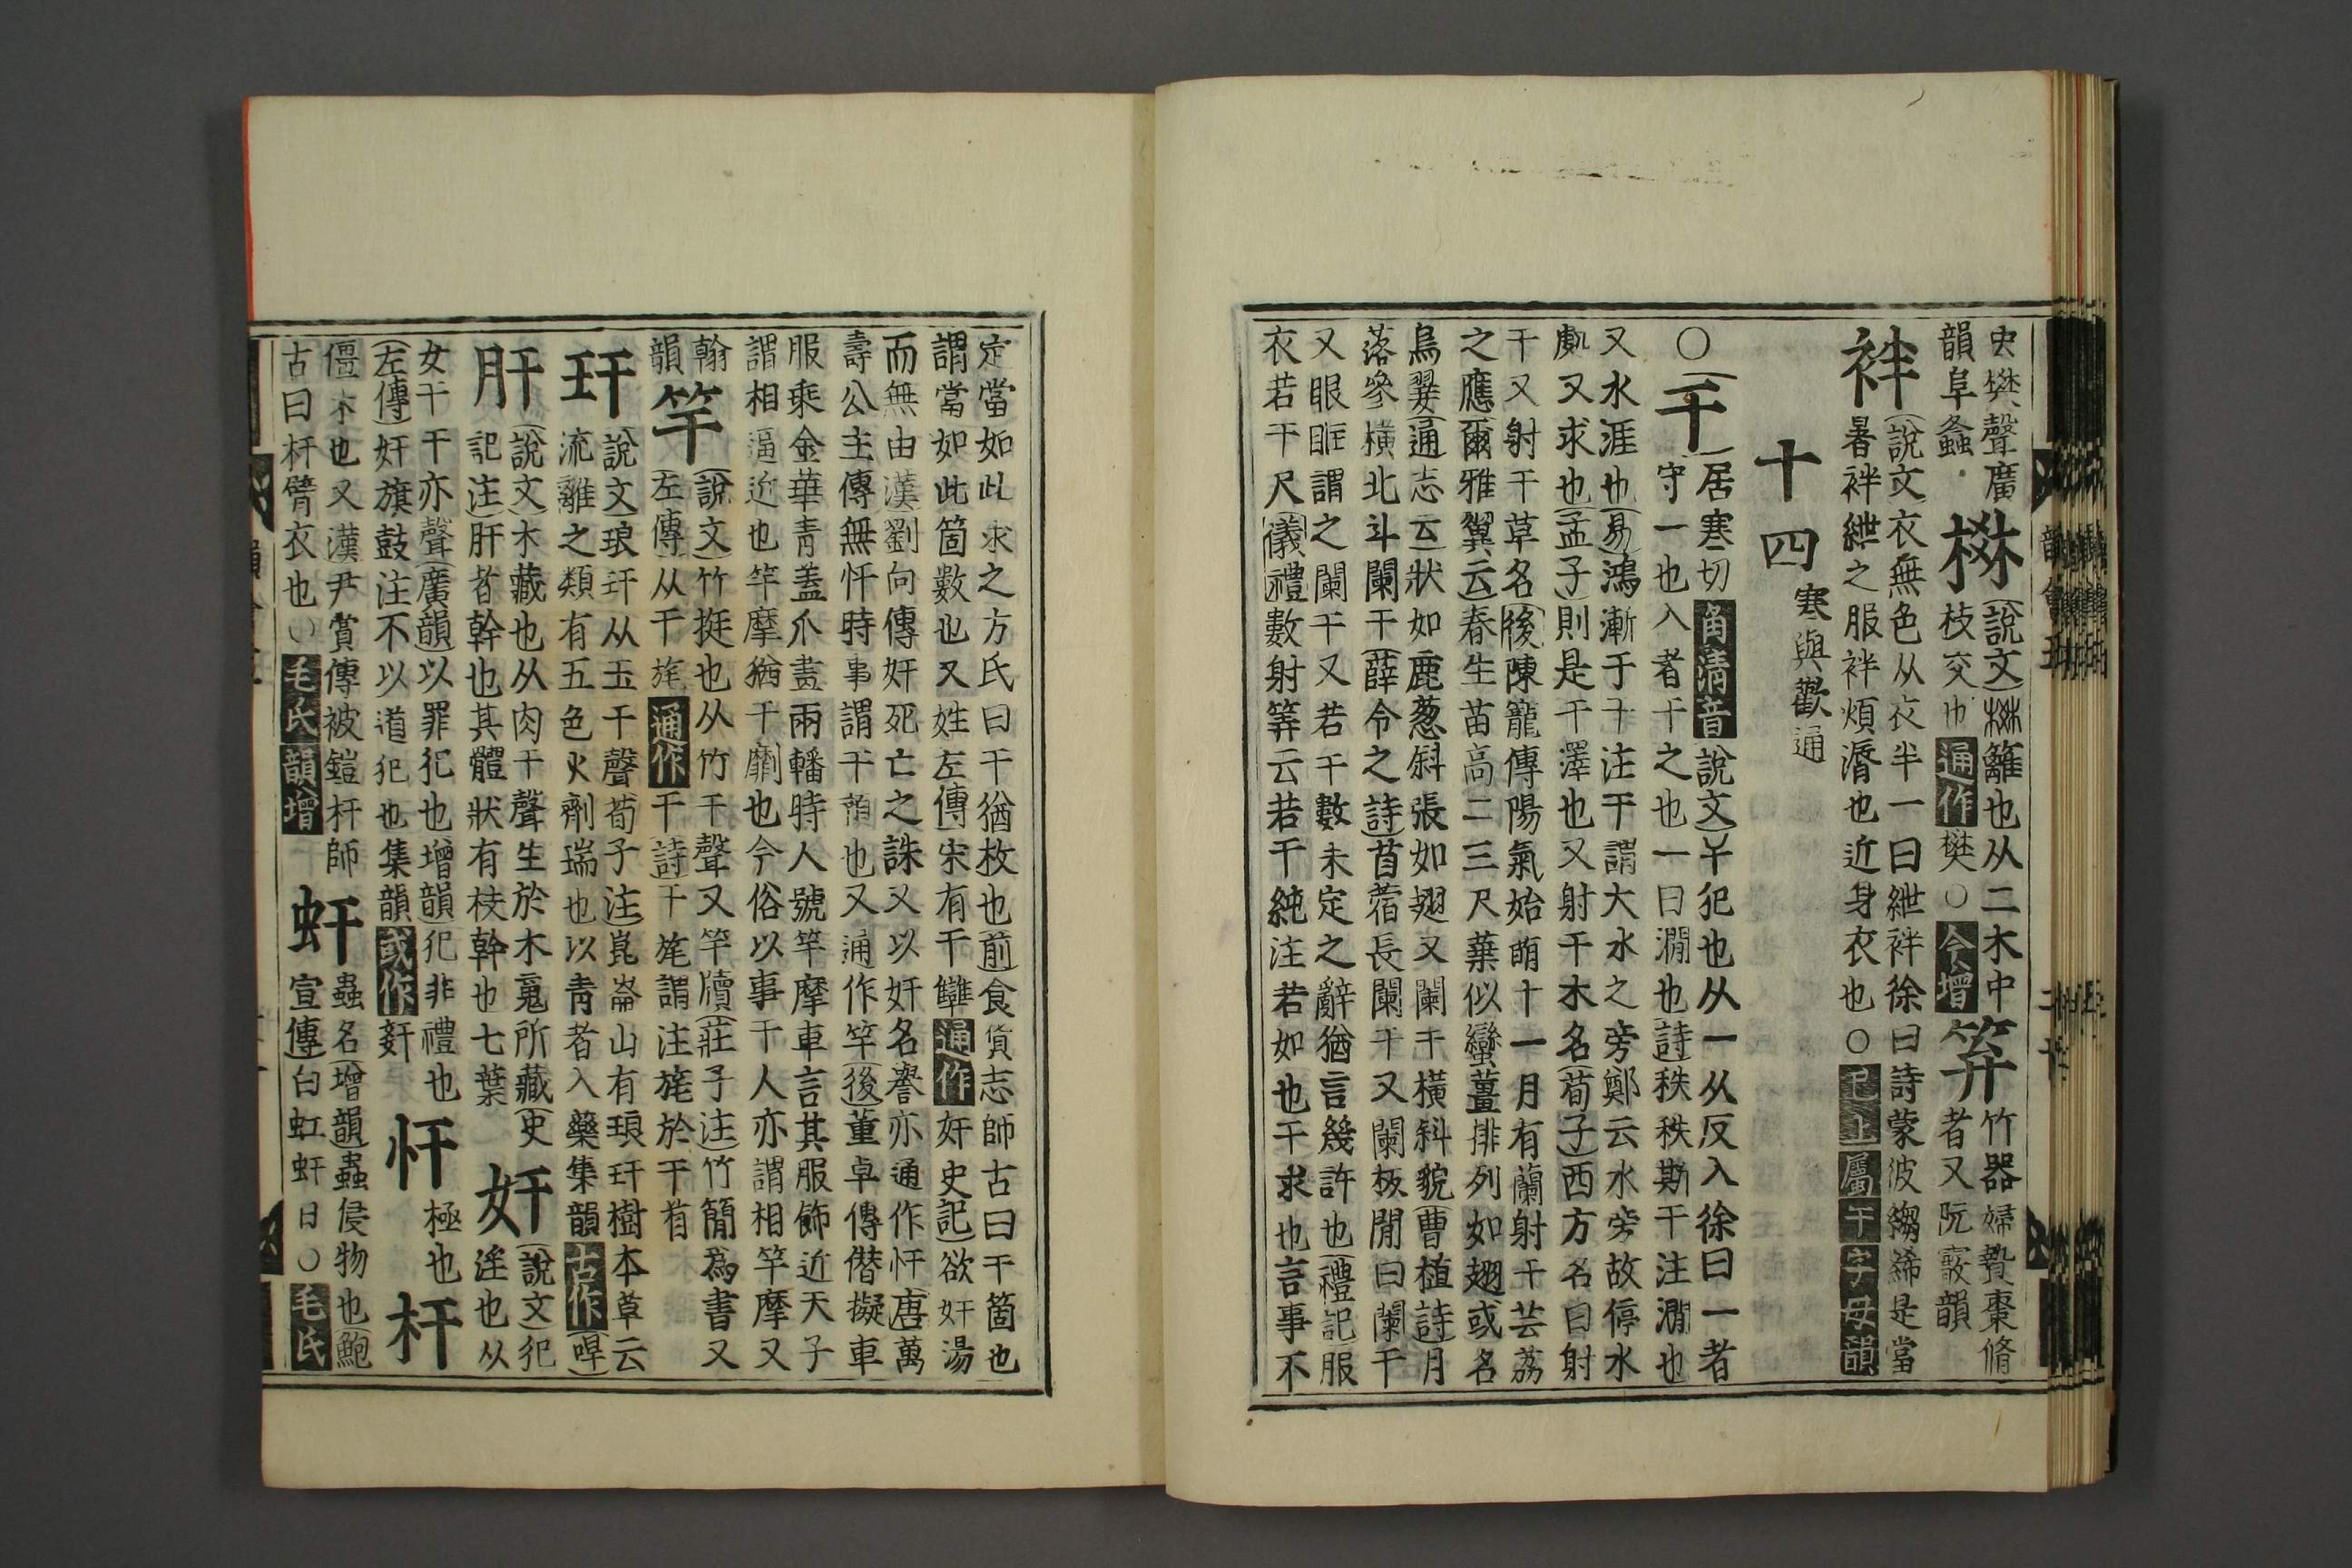 史樊聲廣
韻阜螽
棥
說文棥籬也从二木中
枝交也通作樊○今增
笲
竹器婦贄棗脩
者又阮霰韻
袢
說文衣無色从衣半一曰紲袢徐曰詩蒙彼縐絺是當
暑袢紲之服袢煩溽也近身衣也○已上屬干字母韻
十四
寒與歡通
○干
居寒切角清音說文干犯也从一从反入徐曰一者
守一也入者干之也一曰澗也詩秩秩斯干注澗也
又水涯也易鴻漸于干注干謂大水之旁鄭云水旁故停水
處又求也孟子則是干澤也又射干木名荀子西方名曰射
干又射干草名後陳寵傳陽氣始萌十一月有蘭射干芸荔
之應爾雅翼云春生苗高二三尺葉似蠻薑排列如翅或名
烏翣通志云狀如鹿葱斜張如翅又闌干橫斜貌曹植詩月
落參橫北斗闌干薛令之詩苜蓿長闌干又闌板閒曰闌干
又眼眶謂之闌干又若干數未定之辭猶言幾許也禮記服
衣若干尺儀禮數射筭云若干純注若如也干求也言事不
定當如此求之方氏曰干猶枚也前食貨志師古曰干箇也
謂當如此箇數也又姓左傳宋有干犨通作奸史記欲奸湯
而無由漢劉向傳奸死亡之誅又以奸名譽亦通作忓唐萬
壽公主傳無忓時事謂干預也又通作竿後董卓傳僭擬車
服乘金華青蓋爪畫兩轓時人號竿摩車言其服飾近天子
謂相逼近也竿摩猶干劘也今俗以事干人亦謂相竿摩又
翰
韻
竿
說文竹挺也从竹干聲又竿牘莊子注竹簡為書又
左傳从干旄通作干詩干旄謂注旄於干首
玕
說文琅玕从玉干聲荀子注崑崙山有琅玕樹本草云
流離之類有五色火劑瑞也以青者入藥集韻古作琾
肝
說文木藏也从肉干聲生於木䰟所藏史
記注肝者幹也其體狀有枝幹也七葉
奸
說文犯
淫也从
女干干亦聲廣韻以罪犯也增韻犯非禮也
左傳奸旗鼓注不以道犯也集韻或作姧
忓
極也
杆
僵木也又漢尹賞傳被鎧杆師
古曰杆臂衣也○毛氏韻增
虷
蟲名增韻蟲侵物也鮑
宣傳白虹虷日○毛氏